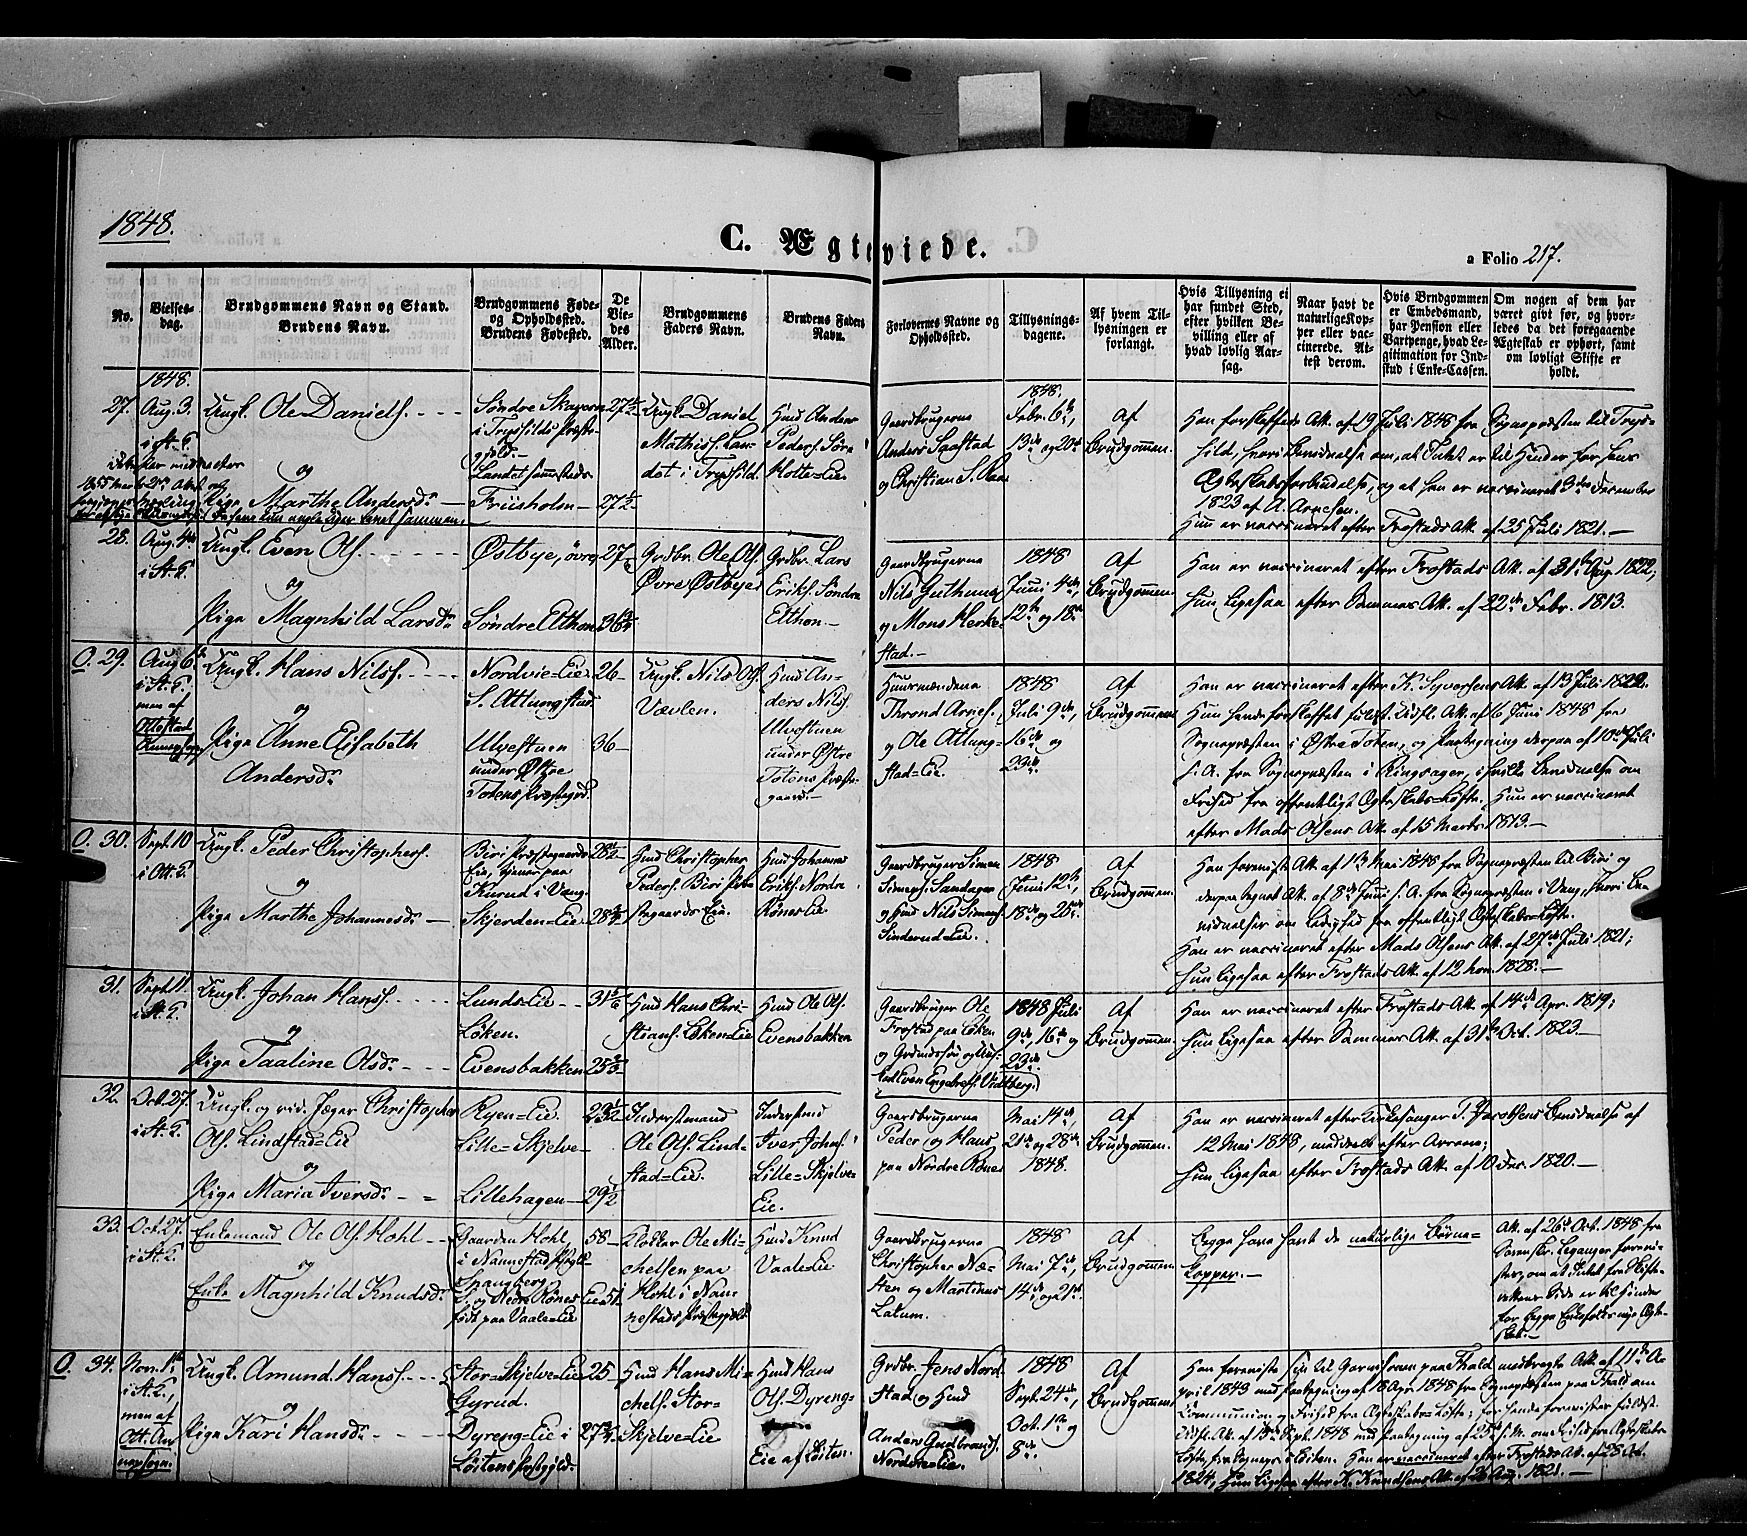 1848.
C. Ægteviede.
a Folio 217.
No.
Vielses-
dag.
Brudgommens Navn og Stand.
Brudens Navn.
Brudgommens Føde-
og Opholdssted.
Brudens Fødested.
De
Vie-
des
Alder.
Brudgommens
Faders Navn.
Brudens Faders
Navn.
Forlovernes Navne og
Opholdssted.
Tillysnings-
dagene.
Af hvem Til-
lysningen er
forlangt.
Hvis Tillysning ei
har fundet Sted,
efter hvilken Be-
villing eller af
hvad lovlig Aar-
sag.
Naar havt de
naturlige Kop-
per eller vac-
cinerede. At-
test derom.
Hvis Brudgommen
er Embedsmand,
har Pension eller
Vartpenge, hvad Le-
gitimation for Ind-
skud i Enke-Cassen.
Om nogen af dem har
været givt før, og hvor-
ledes da det foregaaende
Ægteskab er ophørt, samt
om lovligt Skifte er
holdt.
1848.
27. Aug. 3.
Ungk. Ole Daniels.
og
Pige Marthe Andersd.
Søndre
i Trysilds Præste-
gjeld
Landet sammesteds
Friisholm
27½
Ungk. Daniel
Mathiss. Lan-
det i Trysild.
Huusm. Anders
Peders. Søn
Holte-Eie
Gaardbrugerne
Anders Saastad
og Christian S.
1848.
Febr. 6te,
13de og 20de
Af
Brudgommen.
Han forskaffede Att. af 19 Juli 1848 fra Sognepræsten til Try-
sild, hvori Bevidnelse om, at Intet er til Hinder for hans
Ægteskabsforbindelse, og at han er vaccineret 3die December
1823 af A. Arnesen.
Hun er vaccineret efter Frostads Att. af 25 Juli 1821.
28. Aug. 4de
i St. K.
Ungk. Even Ols.
og
Pige Magnhild Larsd.
Østbye, øvre
Søndre Elthon
27
36¾
Grdbr. Ole Ols.
Øvre Østbye
Grdbr. Lars
Eriks. Søndre
Elthon.
Gaardbrugerne
Nils Guthus
og Mons Herke-
stad.
1848
Juni 4de,
12te og 18de
Af
Brudgommen
Han er vaccineret efter Frostads Att. af 31te Aug. 1822;
Hun ligesaa efter Sommers Att. af 22de Febr. 1813.
O. 29. Aug. 6te
i St. K.
men af
Ottestad
Annexsogn
Ungk. Hans Nilss.
og
Pige Anne Elisabeth
Andersd.
Nordvie-Eie
S. Attungstad
Ulvestuen
under Østre
Totens Præstegrd.
26
36
Ungk. Nils Ols.
Vævlen.
Huusm. An-
ders Nils.
Ulvestuen
under Østre
Totens Præste-
gaard.
Huusmændene
Thrond Arnes.
og Ole Attung-
stad-Eie.
1848
Juli 9de,
16de og
23de
Af
Brudgommen
Han er vaccineret efter K. Syversens Att. af 13 Juli 1822.
Hun havde forskaffet fuldst. Att. af 16 Juni 1848 fra
Sognepræsten i Østre Toten, og Paategning derpaa af 10de Juli
s. A. fra Sognepræsten i Ringsager, i hvilke Bevidnelse om
Frihed fra offentligt Ægteskabs-Løfte. Hun er vaccineret
efter Mads Olsens Att. af 15 Marts 1813.
O. 30. Sept. 10
i St. K.
Ungk. Peder Christophers.
og
Pige Marthe Johannesd.
Biri Præstegaards
Eie, tjener paa
Kurud i Vang.
Skjerden-Eie
28½
28¾
Huusm. Christopher
Peders. Biri Præ-
stegaards-Eie.
Huusm. Johannes
Eriks. Nordre
Rønes-Eie.
Gaardbruger Simen
Simens. Sandager
og Huusm. Nils Simens.
Sinderud-Eie.
1848
Juni 12te,
18de og 25de
Af
Brudgommen.
Han foreviste Att. af 13 Mai 1848 fra Sognepræsten til Biri og
derpaa tegnet Att. af 8de Juni s. A. fra Sognepræsten i Vang, hvori Be-
vidnelser om Ledighed fra offentligt Ægteskabs-Løfte.
Han er vaccineret efter Mads Olsens Att. af 27de Juli 1821;
Hun ligesaa efter Frostads Att. af 12 Nov. 1828.
31. Sept. 11.
i St. K.
Ungk. Johan Hanss.
og
Pige Taaline Olsd.
Lunds-Eie
Løken.
Evensbakken
31
25
Huusm. Hans Chri-
stians. Løken-Eie
Huusm. Ole Ols.
Evensbakken
Gaardbruger Ole
Frostad paa Løken
og
Even Engebrets. Vidtberg.
1848 Juli
9de, 16de og
23de
Af
Brudgommen.
Han er vaccineret efter Frostads Att. af 14de Apr. 1819;
Hun ligesaa efter Sommers Att. af 31te Oct. 1823.
32. Oct. 27.
i St. K.
Ungk. og rid. Jæger Christopher
Ols. Lindstad-Eie
og
Pige Maria Iversd.
Ryen-Eie.
Lille-Skjelve-
Lillehagen
29½
29½
Inderstmand
Ole Ols. Lind-
stad-Eie.
Inderstmd.
Iver Johns.
Lille-Skjelve-
Eie.
Gaardbrugerne
Peder, og Hans
paa Nordre Rønes
Mai 14de,
21de og 28de
1848.
Af
Brudgommen.
Han er vaccineret efter Kirkesanger T. Jacobsens Bevidnelse af
12 Mai 1848, meddeelt efter
Hun ligesaa efter Frostads Att. af 10 Dec. 1820.
33. Oct. 27.
i St. K.
Enkemand Ole Ols. Hohl
og
Enke Magnhild Knudsd.
Gaarden Hohl
i Nannestad Præstegj.
Spangberg
S. og Nedre Rønes Eie
født paa Vaale-Eie
58
51
Klokker Ole Mi-
chelsen paa
Hohl i Nan-
nestads Præstegjeld
Huusm. Knud
Vaale-Eie
Gaardbrugerne
Christopher Næ-
sten og Martinus
Latum.
1848
Mai 7de,
14de og 21de
Af
Brudgommen
Begge have havt de naturlige Børne-
kopper.
Att. af 26de Oct. 1848 fra
Sorenskr. Leganger forevi-
stes, om at Intet fra Skifte-
rettens Side er til Hinder
for begge Enkefolks nye Ægte-
skab.
O. 34. Nov. 1ste
i St. K.,
men af
Ott. An-
nexsogn.
Ungk. Amund Hanss.
og
Pige Kari Hansd.
Stor-Skjelve-Eie
Gyrud.
Dyreng-Eie i
Løitens Præstegjeld.
25
27¾
Huusm. Hans Mi-
chels. Stor-
Skjelve-Eie
Huusm. Hans
Ols. Dyreng-
Eie af Løiten.
Grdbr. Jens Nord-
stad og Huusm.
Anders Gudbrands.
Nordvie-Eie.
1848
Sept. 24de
Oct. 1ste og
8de
Af
Brudgommen
Att. af 11te A-
pril 1843 med Paategning af 18 Apr. 1848 fra Sognepræsten paa
Communion og Frihed fra Ægteskabs-Løfte;
Han er vaccineret efter Frostads Att. af 28 Oct.
1824, Hun ligesaa efter K. Knudsens Att. af 26 Aug. 1821.